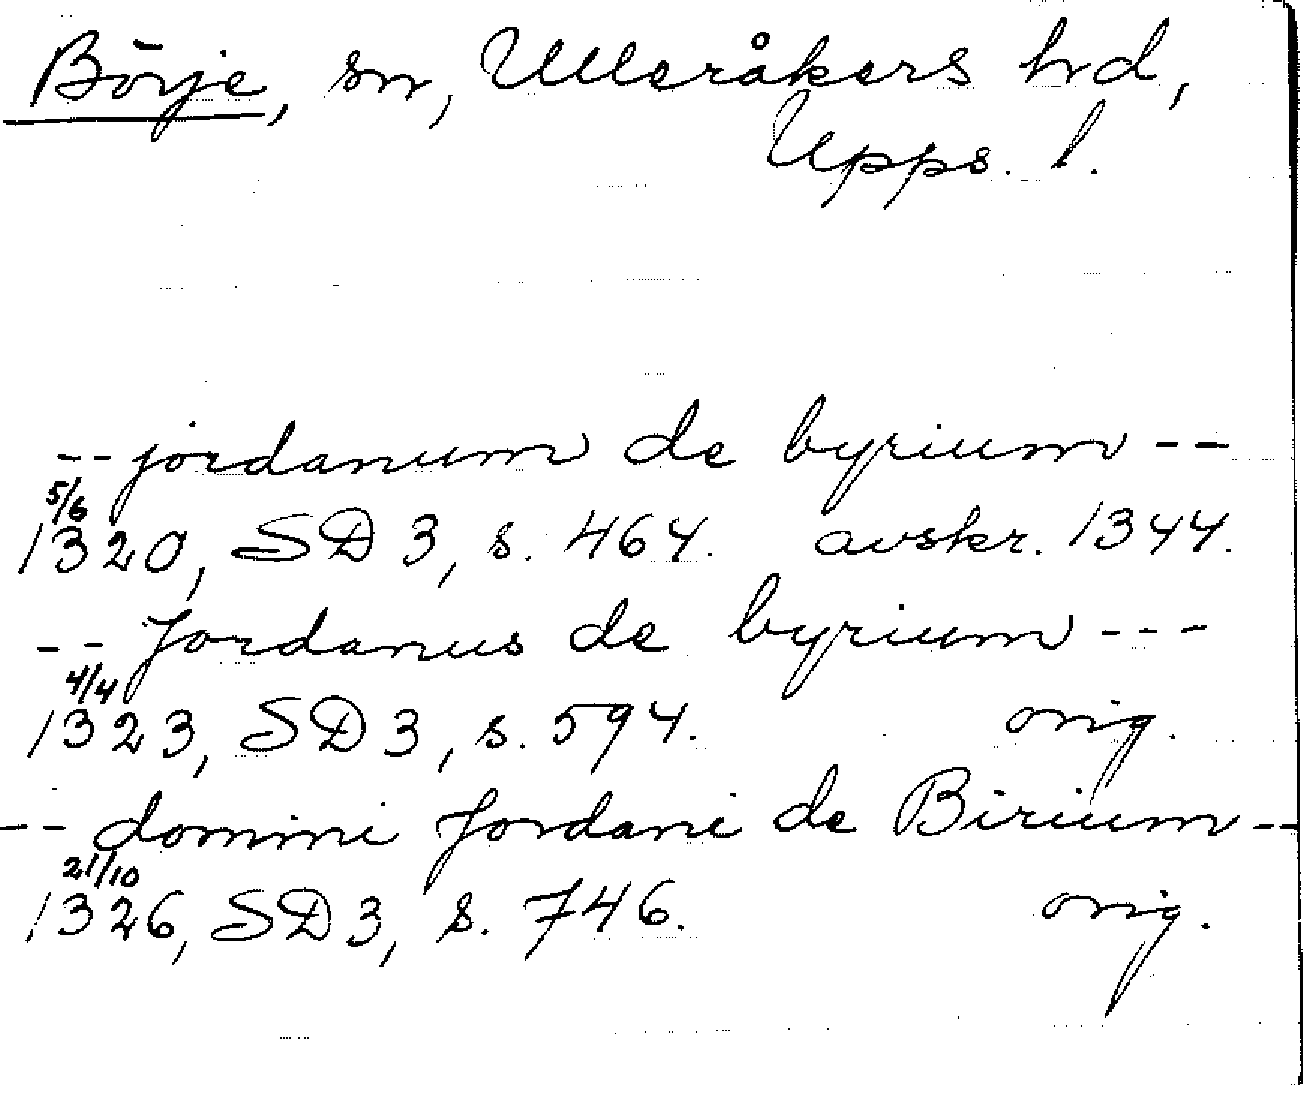 Börje, sn, Ulleråkers hrd,
Upps. l.
-- jordanum de byrium --
5/6
1320, SD 3, s. 464. avskr. 1344.
-- Jordanus de byrium ---
4/4
1323, SD 3, s. 594. orig.
-- domini Jordani de Birium --
21/10
1326, SD 3, s. 746. orig.